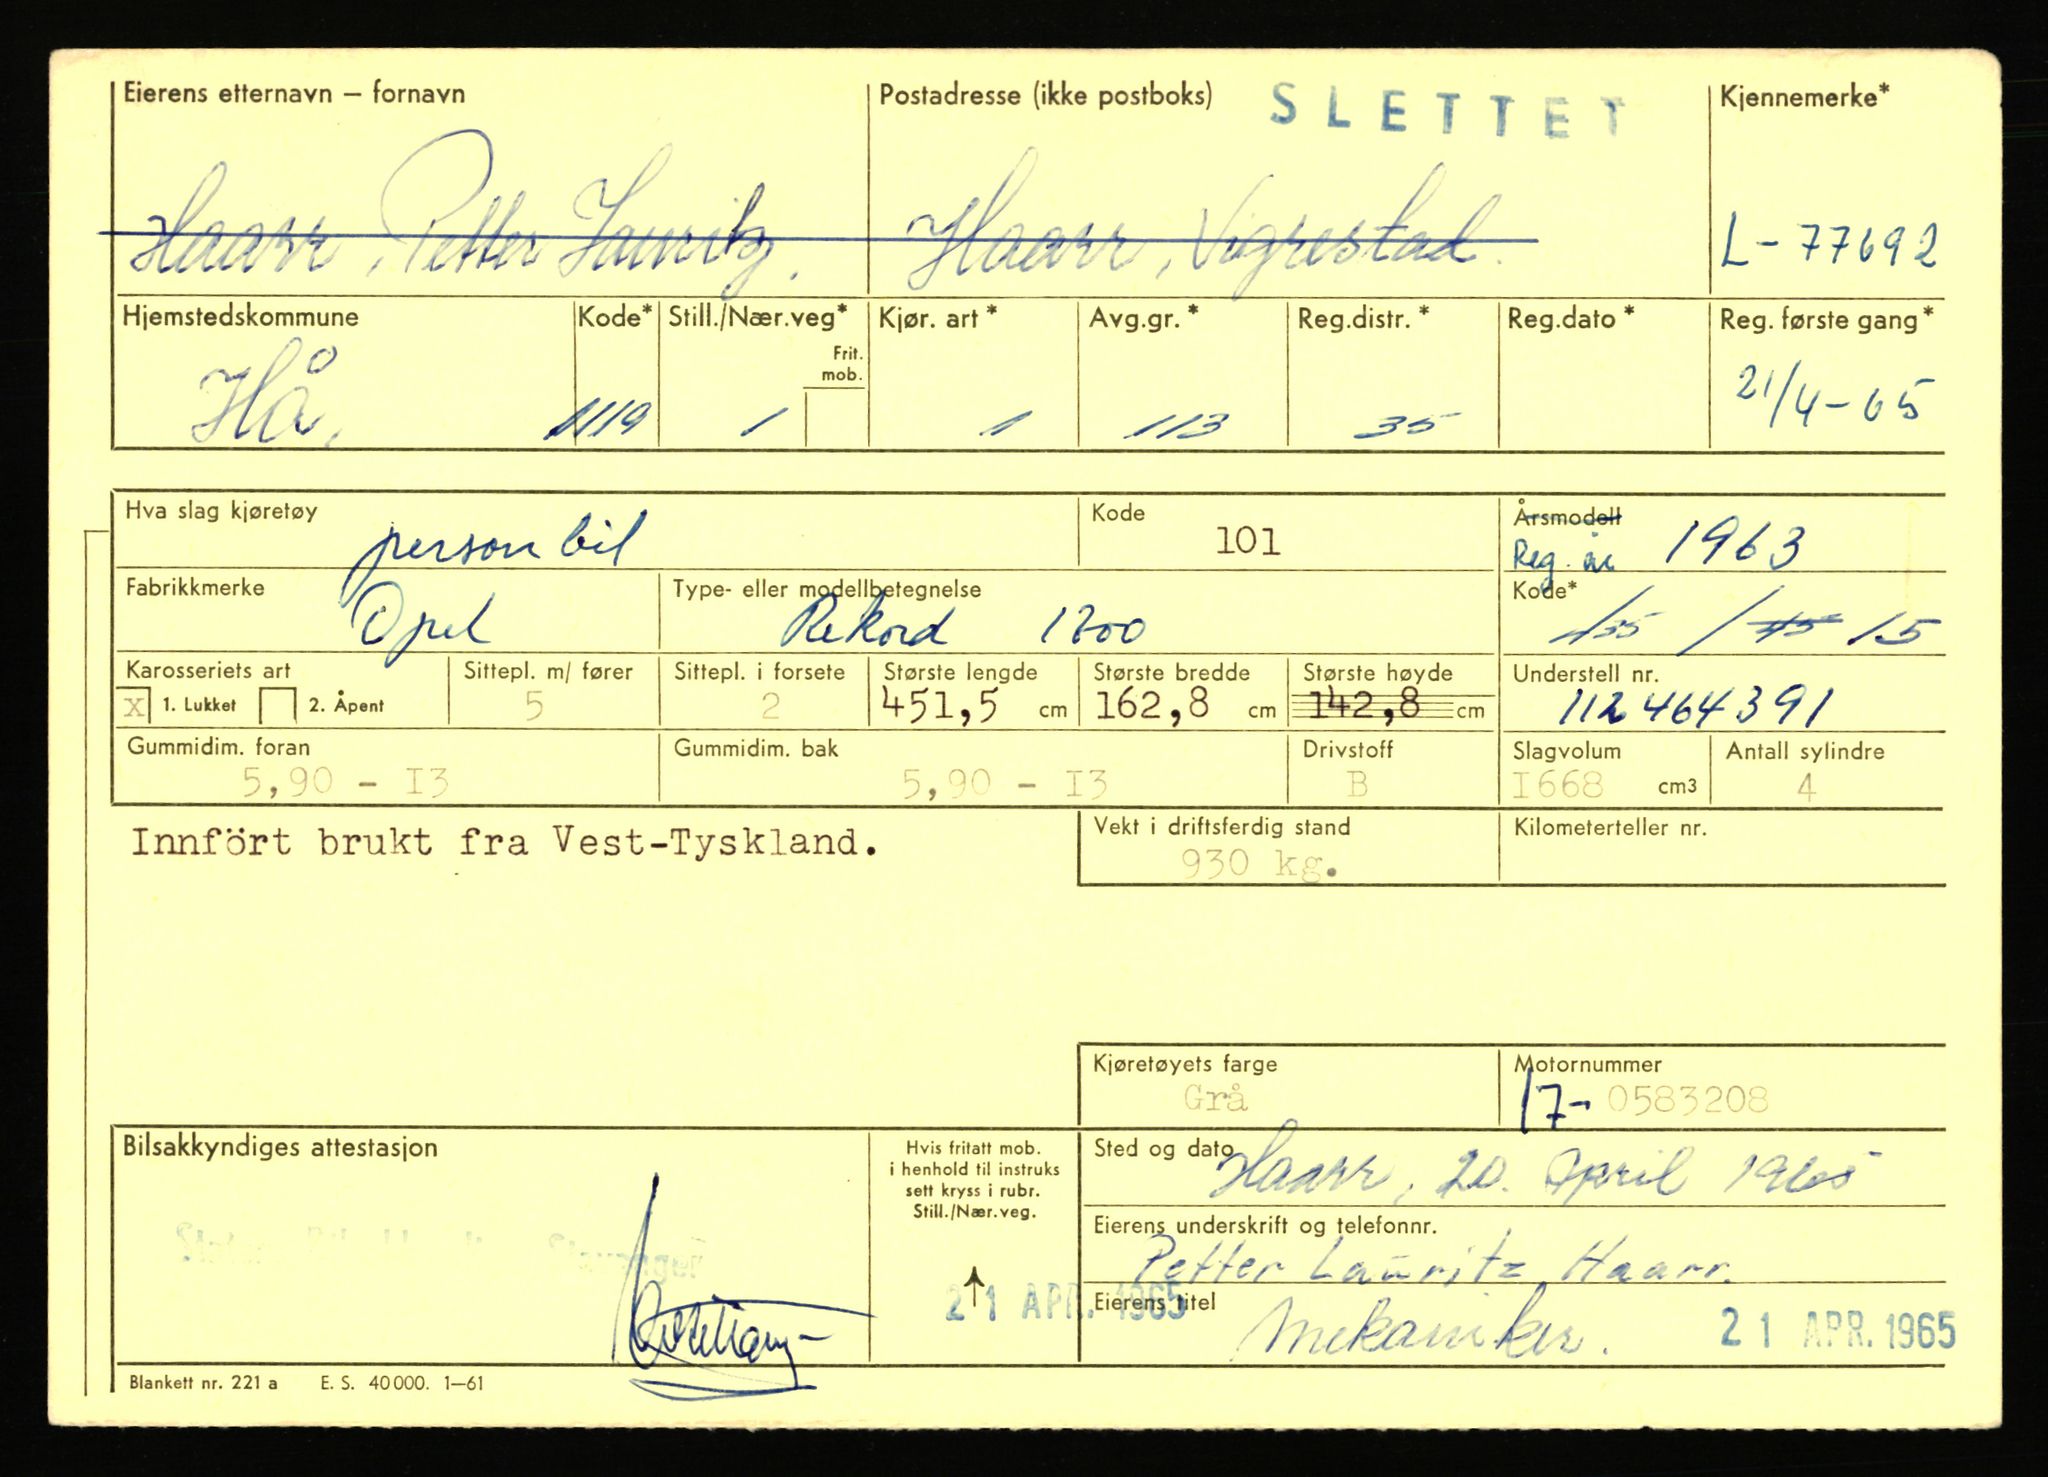 Eierens etternavn – fornavn
Postadresse (ikke postboks)
SLETTET
Kjennemerke*
Haarr, Petter Lauritz.
Haarr, Vigrestad.
L-77692
Hjemstedskommune
Kode*
Still./Nær.veg*
Frit. mob.
Kjør. art *
Avg.gr. *
Reg.distr. *
Reg.dato *
Reg. første gang*
Hå.
1119
1
1
113
35
21/4-65
Hva slag kjøretøy
personbil
Kode
101
Årsmodell
Reg. år 1963
Fabrikkmerke
Opel
Type- eller modellbetegnelse
Rekord 1700
Kode*
135 / 45 15
Karosseriets art
X 1. Lukket 2. Åpent
Sittepl. m/ fører
5
Sittepl. i forsete
2
Største lengde
451,5 cm
Største bredde
162,8 cm
Største høyde
142,8 cm
Understell nr.
112464391
Gummidim. foran
5,90 - I3
Gummidim. bak
5,90 - I3
Drivstoff
B
Slagvolum
I668 cm3
Antall sylindre
4
Innfört brukt fra Vest-Tyskland.
Vekt i driftsferdig stand
930 kg.
Kilometerteller nr.
Kjøretøyets farge
Grå
Motornummer
17- 0583208
Bilsakkyndiges attestasjon
Hvis fritatt mob.
i henhold til instruks
sett kryss i rubr.
Still./Nær.veg.
21 APR. 1965
Sted og dato
Haarr, 20. April 1965
Eierens underskrift og telefonnr.
Petter Lauritz Haarr.
Eierens titel
Mekaniker.
21 APR. 1965
Blankett nr. 221 a E. S. 40 000. 1—61